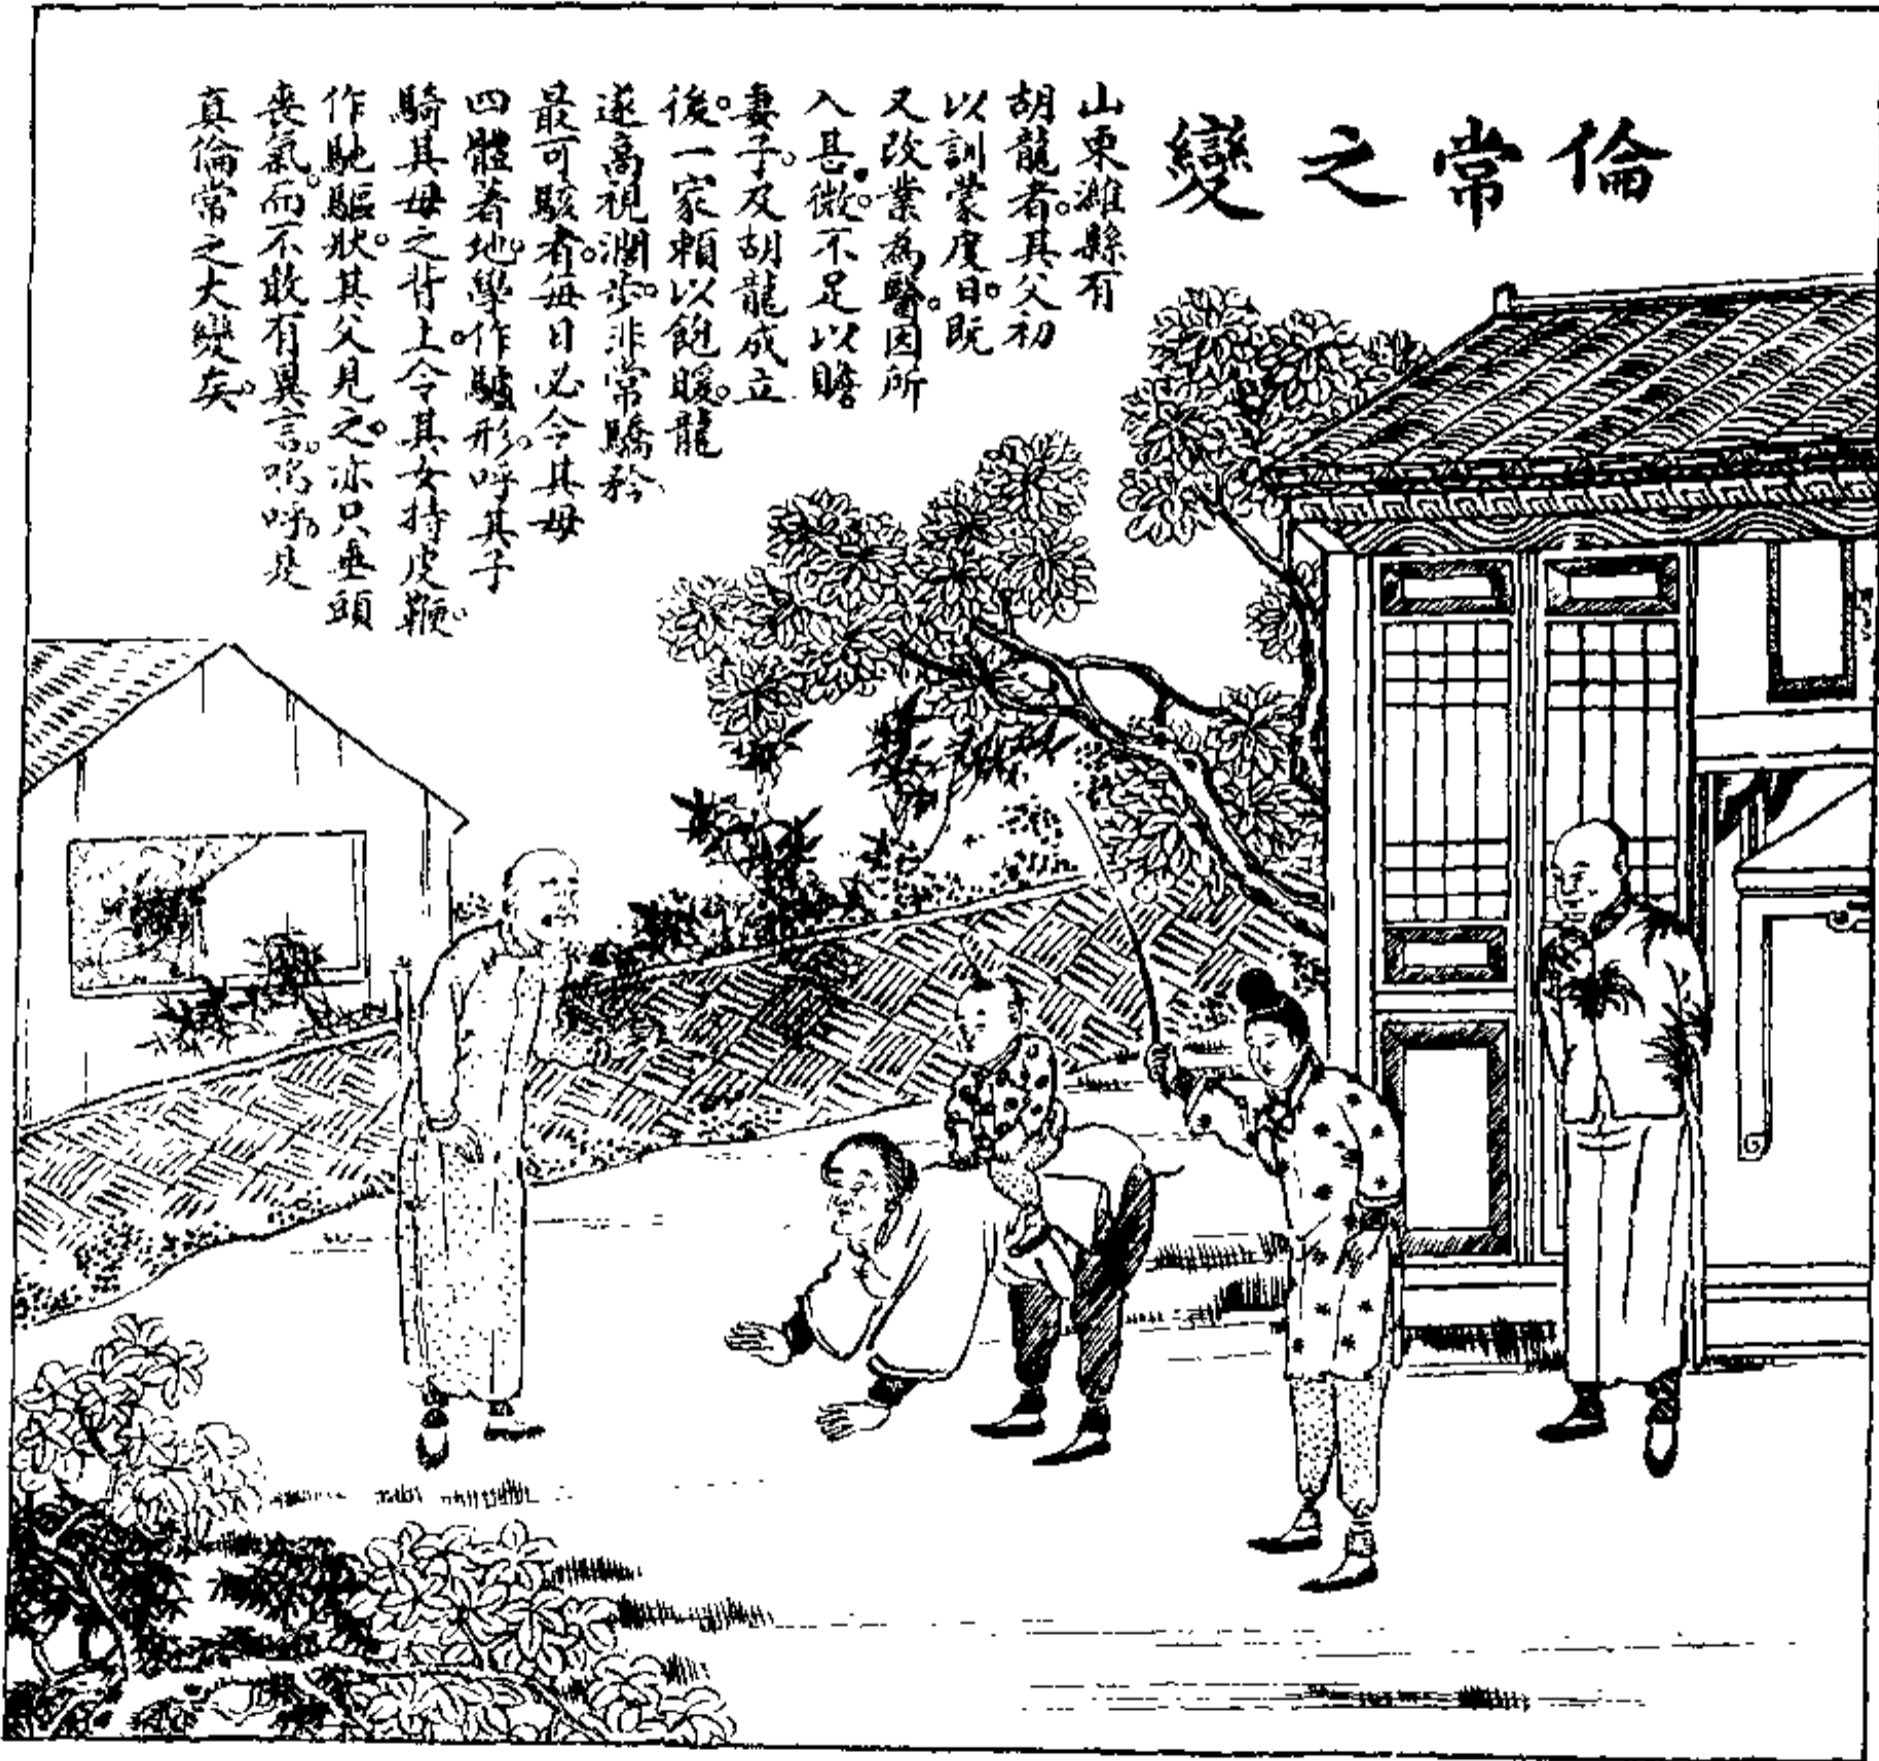 倫常之變
山東濰縣有
胡龍者。其父初
以訓蒙度日。既
又改業為醫。因所
入甚微。不足以贍
妻子。及胡龍成立
後。一家賴以飽暖。龍
遂高視濶步。非常驕矜
最可駭者。每日必令其母
四體著地。學作驢形。呼其子
騎其母之背上。令其女持皮鞭。
作馳驅狀。其父見之。亦只垂頭
喪氣。而不敢有異言。嗚呼。是
真倫常之大變矣。